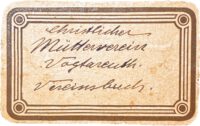 christlicher
Mütterverein
Vogtareuth.
Vereinsbuch.